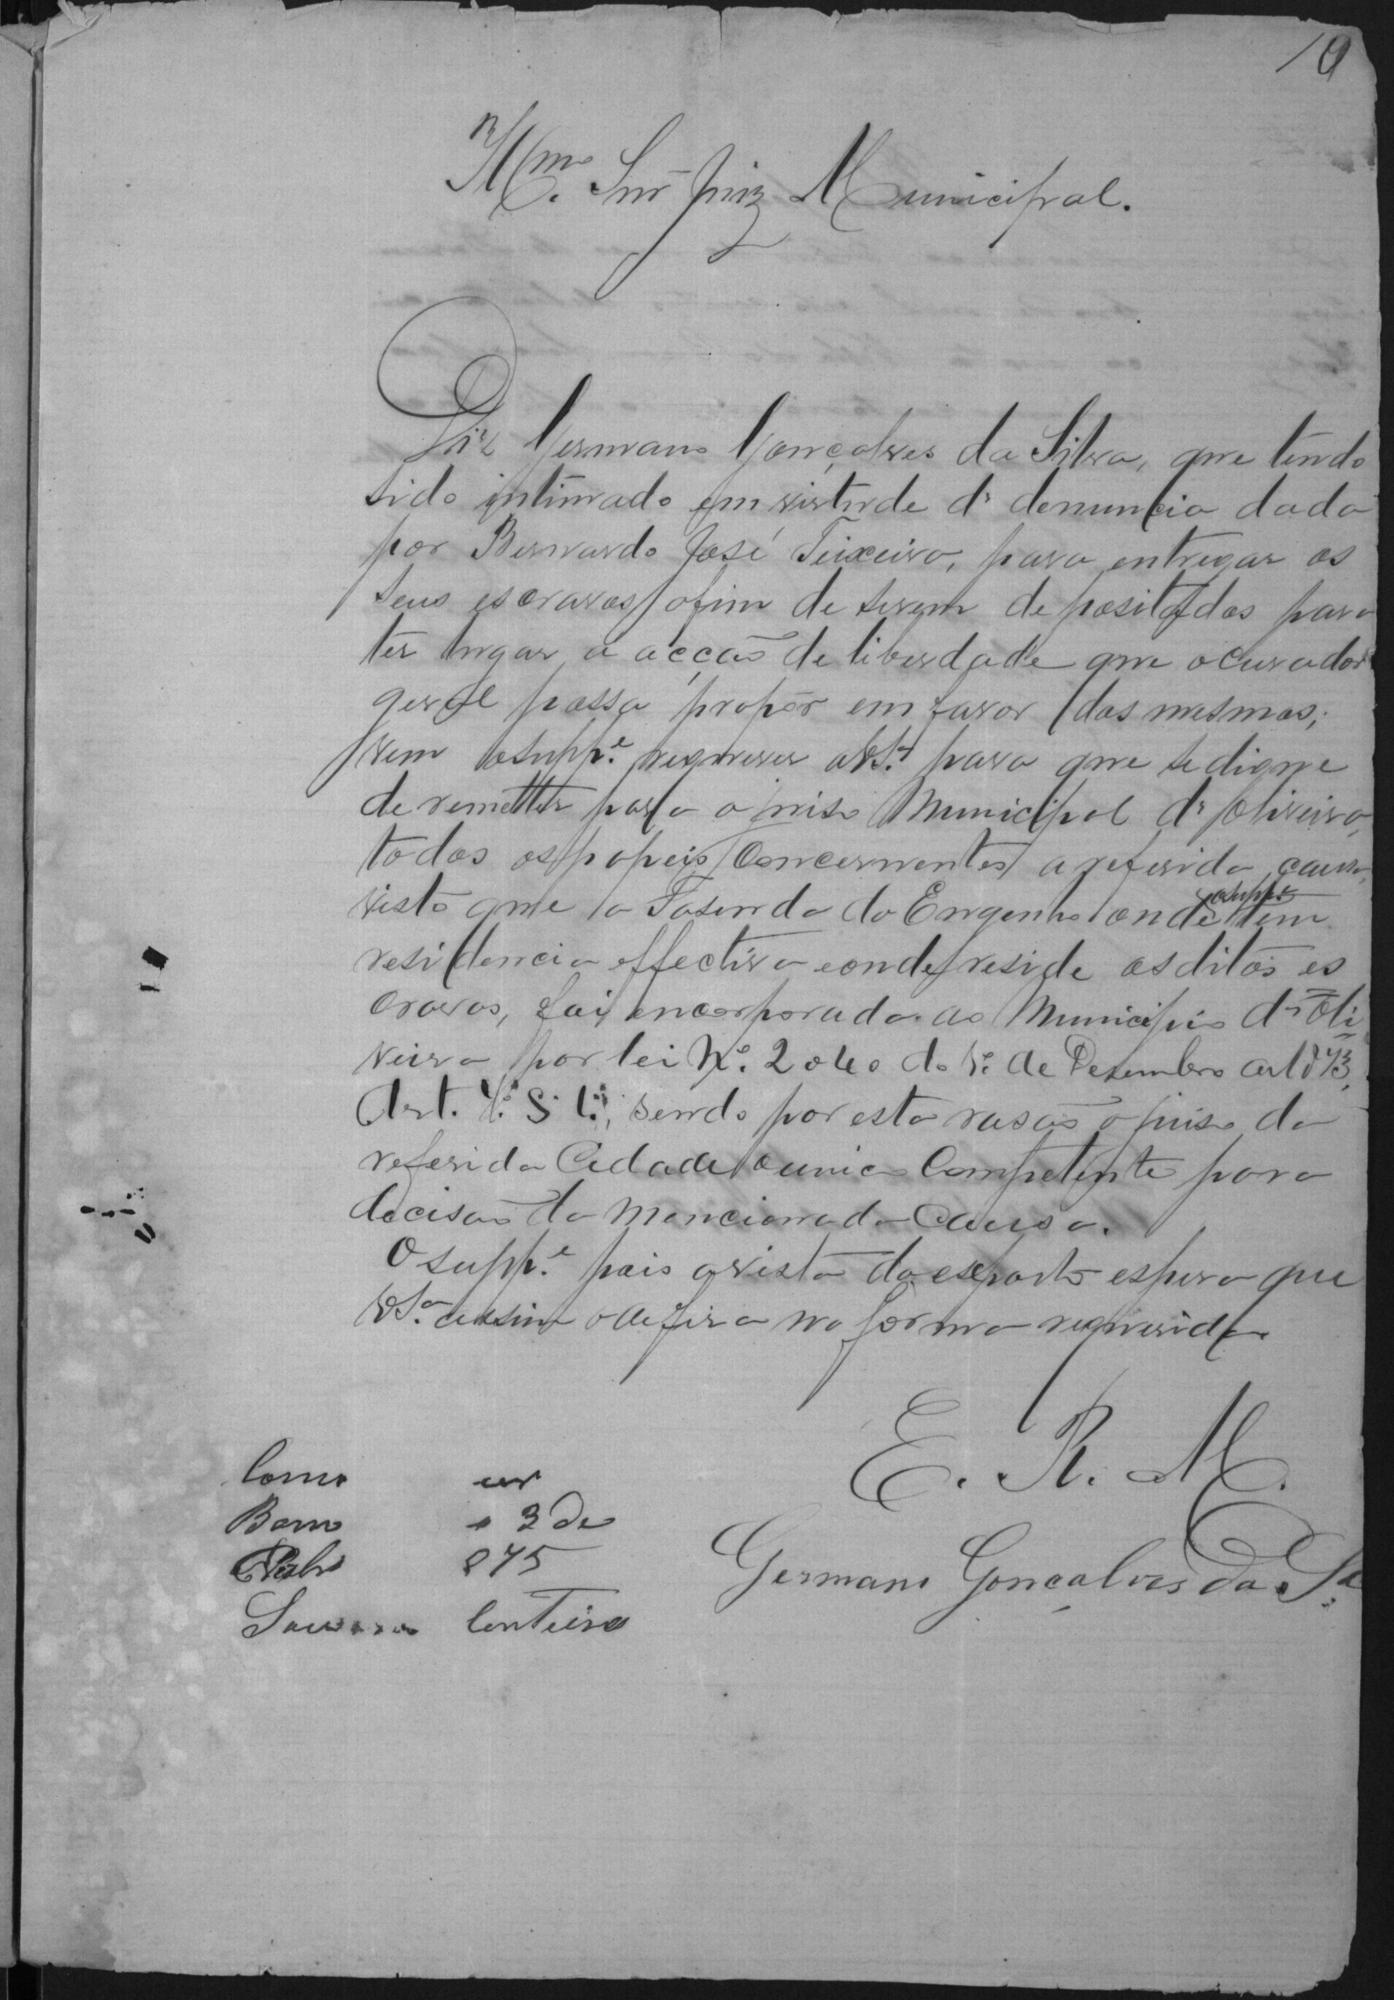 10
Illmo. Snr Juiz Municipal.
Diz Germano Gonçalves da Silva, que tendo
sido intimado em virtude de denuncia dada
por Bernardo José Teixeira, para entregar os
seus escravos, afim de serem depositados para
ter lugar a acção de liberdade que o curador
geral possa propôr em favor dos mesmos;
vem o suppe. requerer a VSa. para que se digne
de remetter para o juiso Municipal de Oliveira,
todos os papeis concernentes a referida causa,
visto que a Fasenda do Engenho onde o suppe tem
residencia effectiva e onde reside os ditos es
cravos, foi encorporada ao Municipio de Oli
veira por lei No. 2040 do 1o. de Desembro de 1873,
Art. 1o. § 1o., sendo por esta rasão o juiso da
referida Cidade o unico Competente para
decisão da mencionada Causa.
O suppe. pois a vista do exposto espera que
VSa. assim o defira na forma requerida.
E. R. M.
Germano Gonçalves da Sa.
3 de
875